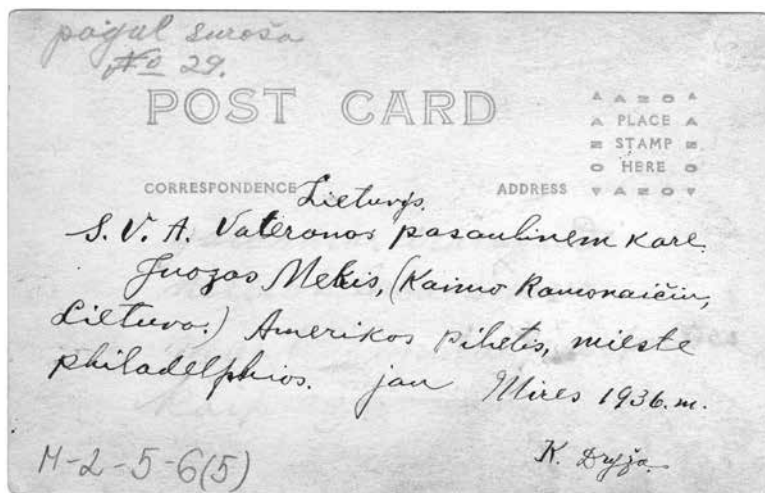 pagal surašą
No 29.
POST CARD
A AZO A
A PLACE A
Z STAMP Z
O HERE O
▼ AZO ▼
CORRESPONDENCE
ADDRESS
Lietuvys.
S. V. A. Vateranos pasaulinem kare.
Juozas Mekis, (Kaimo Ramonaičiu,
Lietuvo.) Amerikos pilietis, mieste
philadelphios. jau Mires 1936.m.
K. Dryža
M-2-5-6(5)